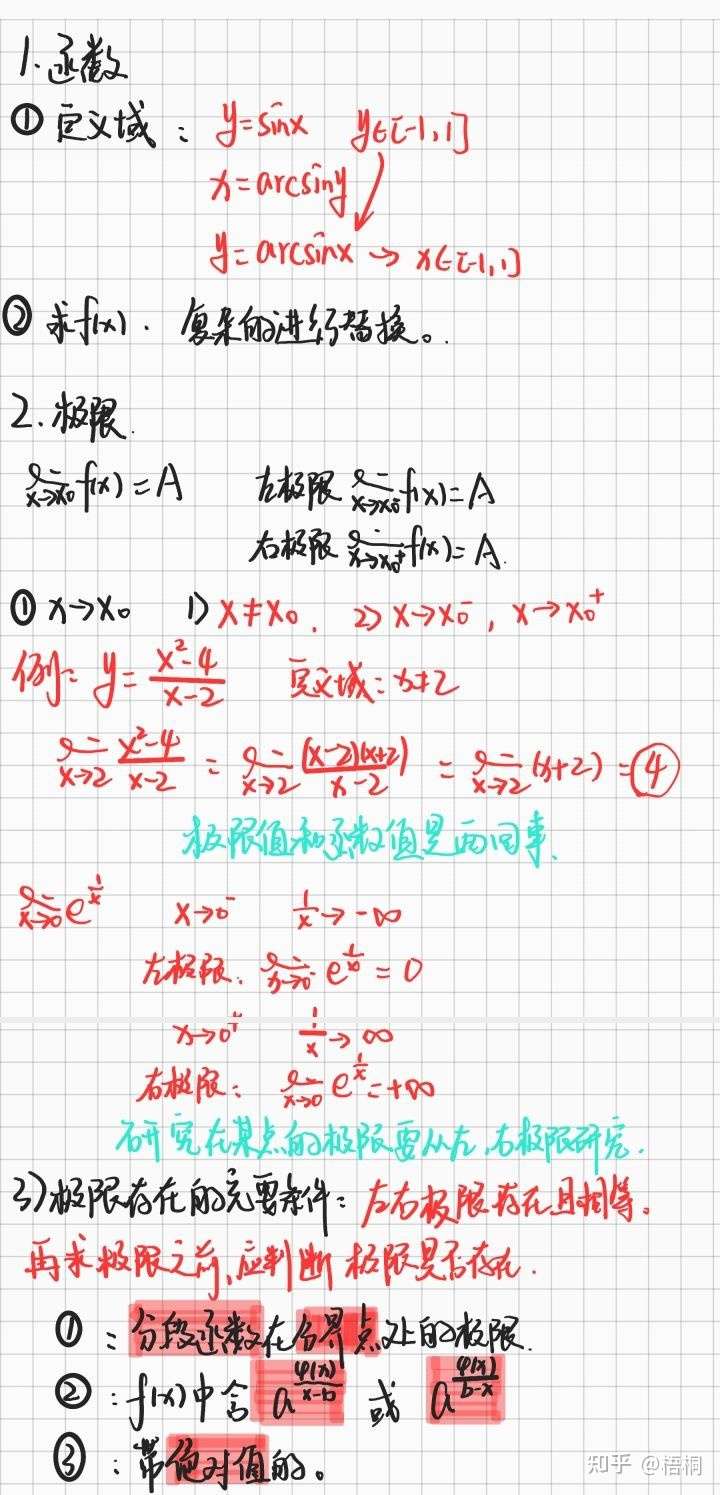 1. 函数
① 定义域： y=sinx y∈[-1,1]
x=arcsiny
y=arcsinx → x∈[-1,1]
② 求f(x)． 复杂的进行替换。
2. 极限．
lim x→x₀ f(x)=A 左极限 lim x→x₀⁻ f(x)=A
右极限 lim x→x₀⁺ f(x)=A.
① x→x₀ 1) x≠x₀． 2) x→x₀⁻, x→x₀⁺
例： y=(x²-4)/(x-2) 定义域：x≠2
lim x→2 (x²-4)/(x-2) = lim x→2 (x-2)(x+2)/(x-2) = lim x→2 (x+2) = ④
极限值和函数值是两回事．
lim x→0 e^(1/x) x→0⁻ 1/x→-∞
左极限： lim x→0⁻ e^(1/x) = 0
x→0⁺ 1/x→∞
右极限： lim x→0 e^(1/x) = +∞
研究在某点的极限要从左,右极限研究．
3)极限存在的充要条件：左右极限存在且相等。
再求极限之前,应判断极限是否存在．
①：分段函数在分界点处的极限．
②：f(x)中含 a^(φ(x)/(x-b)) 或 a^(φ(x)/(b-x))
③：带绝对值的。
知乎 @梧桐